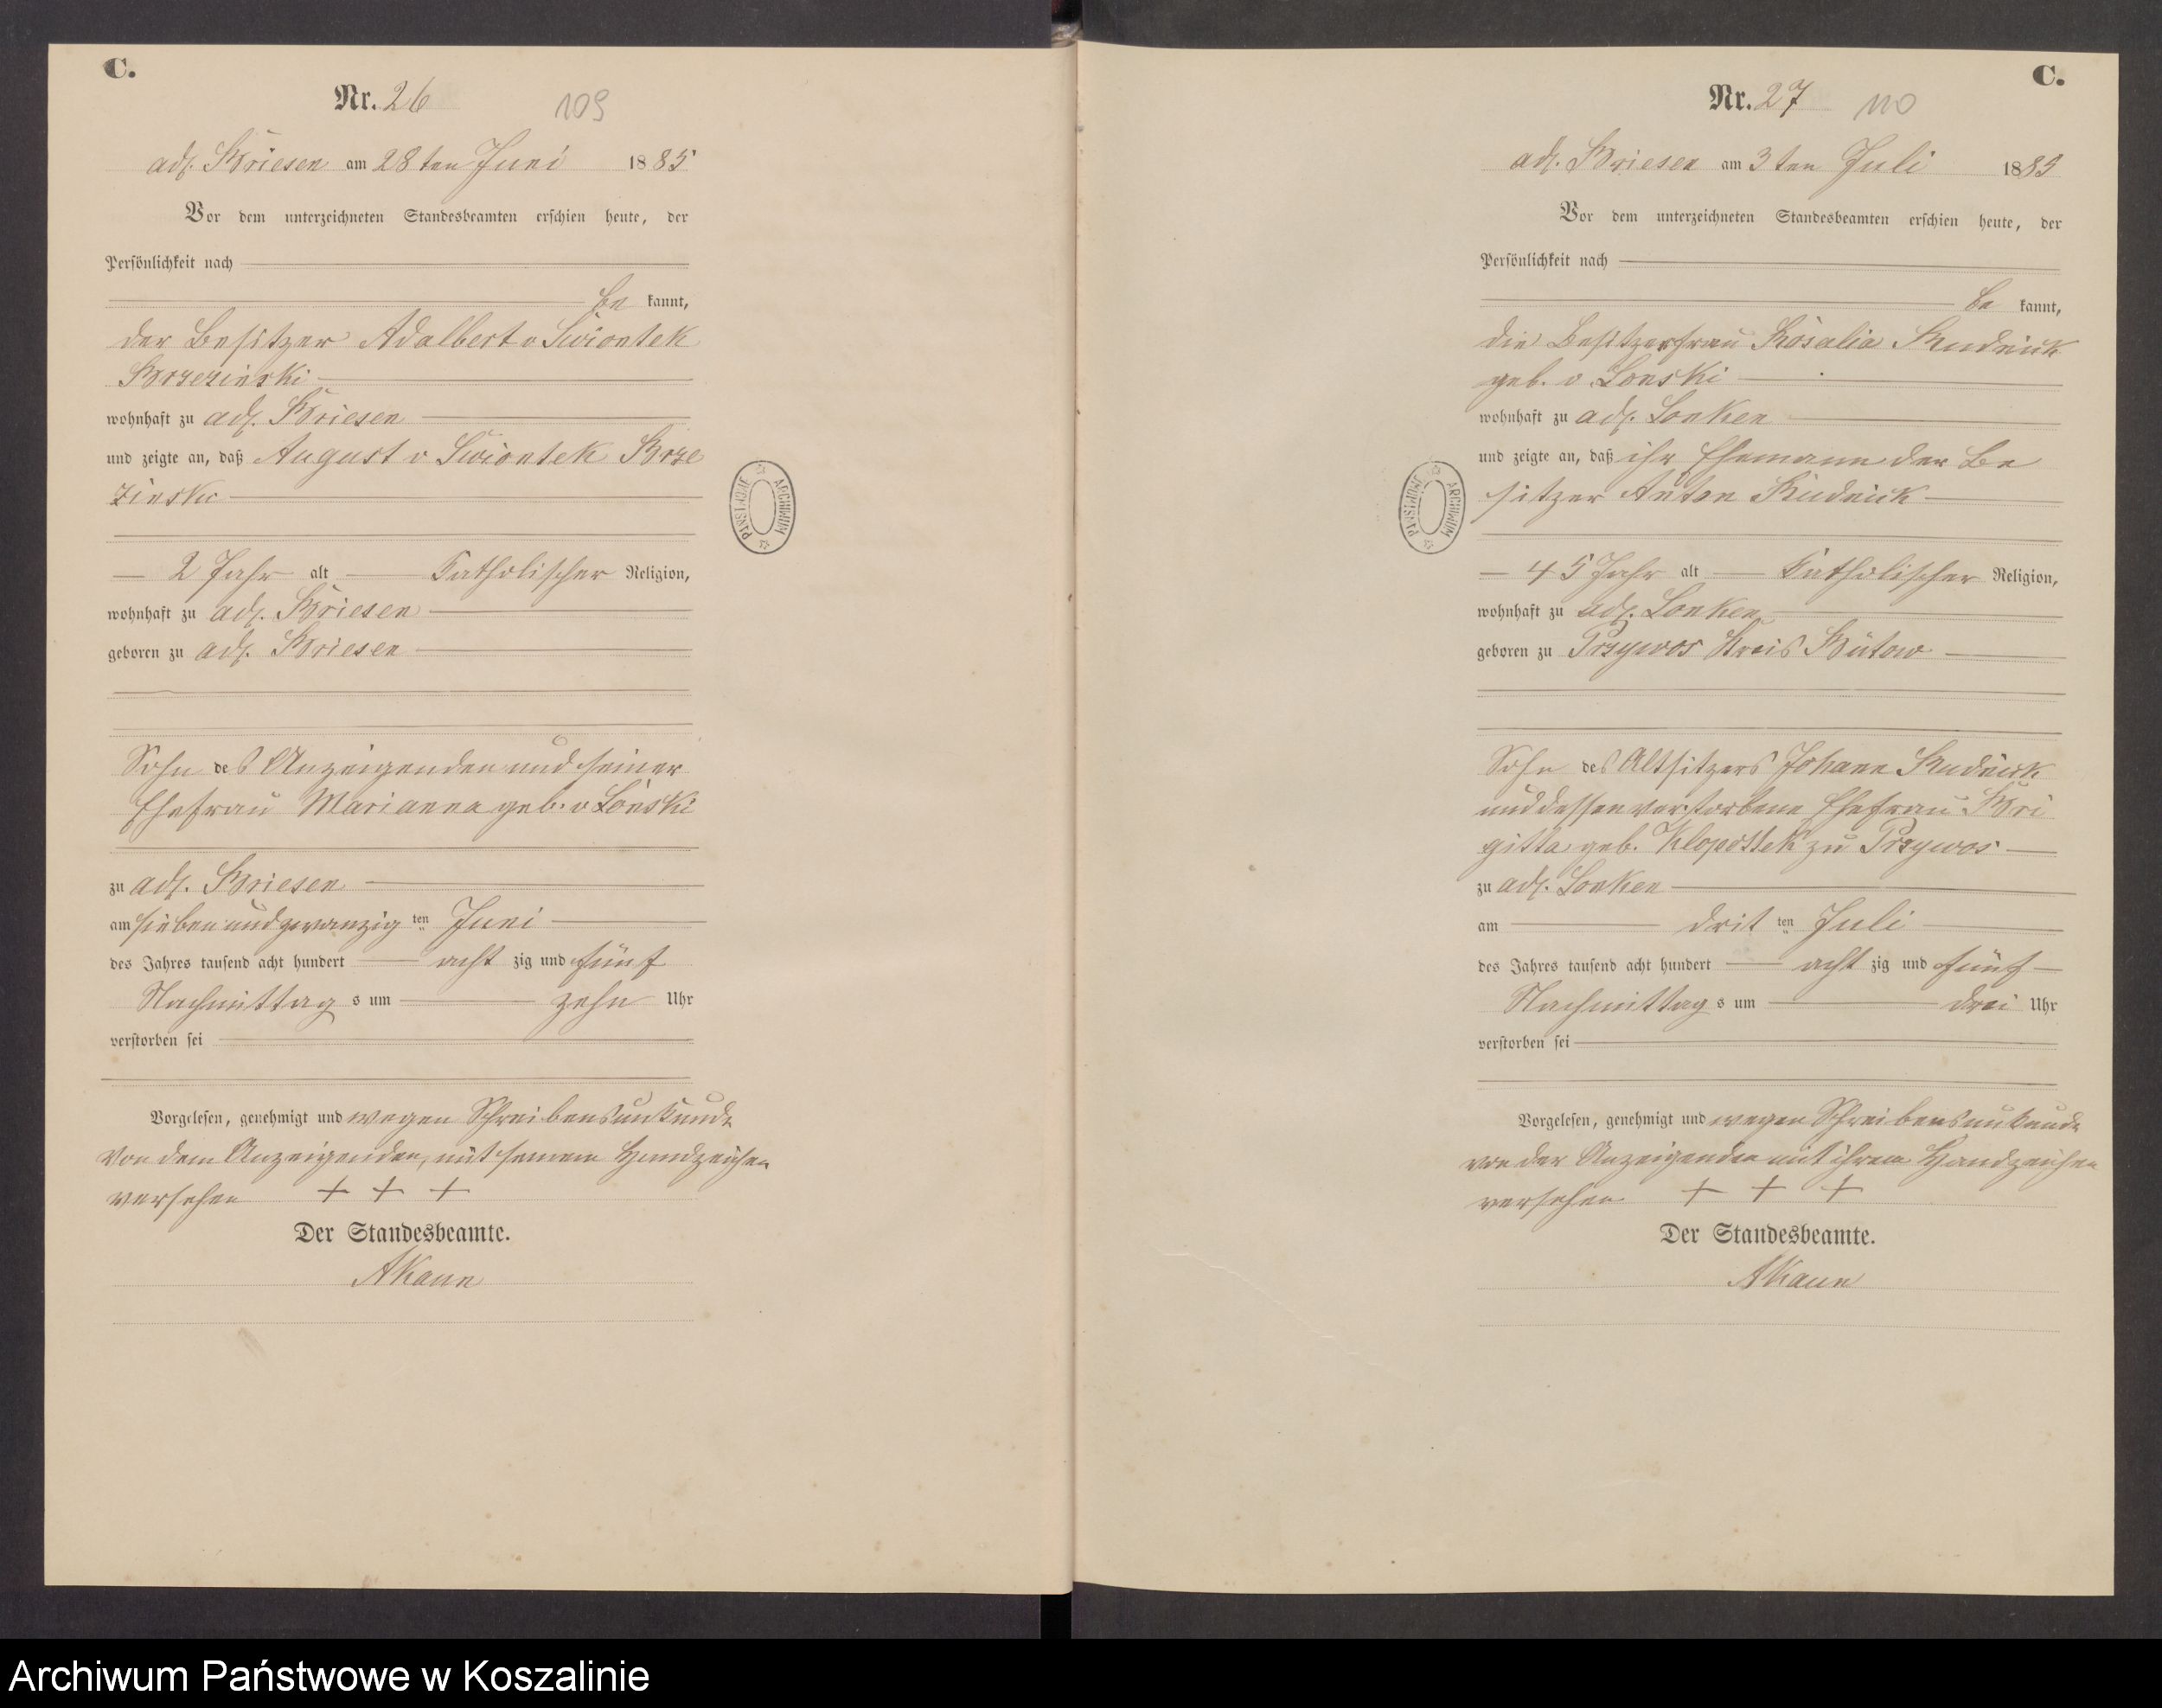 C.
Nr. 26
109
adl. Briesen am 28ten Juni 1885
Vor dem unterzeichneten Standesbeamten erschien heute, der
Persönlichkeit nach
be kannt,
der Besitzer Adalbert v Swiontek
Brzezinski
wohnhaft zu adl. Briesen
und zeigte an, daß August v Swiontek Brze
zinski
2 Jahr alt katholischer Religion,
wohnhaft zu adl. Briesen
geboren zu adl. Briesen
Sohn des Anzeigenden und seiner
Ehefrau Marianna geb. v Lonski
zu adl. Briesen
am sieben und zwanzig ten Juni
des Jahres tausend acht hundert acht zig und fünf
Nachmittag s um zehn Uhr
verstorben sei
Vorgelesen, genehmigt und wegen Schreibensunkunde
von dem Anzeigenden, mit seinem Handzeichen
versehen + + +
Der Standesbeamte.
AKaun
ARCHIWUM PAŃSTWOWE
C.
Nr. 27
110
adl. Briesen am 3ten Juli 1885
Vor dem unterzeichneten Standesbeamten erschien heute, der
Persönlichkeit nach
be kannt,
die Besitzerfrau Rosalia Rudnick
geb. v. Lonski
wohnhaft zu adl. Lonken
und zeigte an, daß ihr Ehemann der Be
sitzer Anton Rudnick
45 Jahr alt katholischer Religion,
wohnhaft zu adl. Lonken
geboren zu Przywos Kreis Bütow
Sohn des Altsitzers Johann Rudnick
und dessen verstorbene Ehefrau Bri
gitta geb. Klopottek zu Przywos
zu adl. Lonken
am drit ten Juli
des Jahres tausend acht hundert acht zig und fünf
Nachmittag s um drei Uhr
verstorben sei
Vorgelesen, genehmigt und wegen Schreibensunkunde
von der Anzeigenden mit ihrem Handzeichen
versehen + + +
Der Standesbeamte.
AKaun
ARCHIWUM PAŃSTWOWE
Archiwum Państwowe w Koszalinie